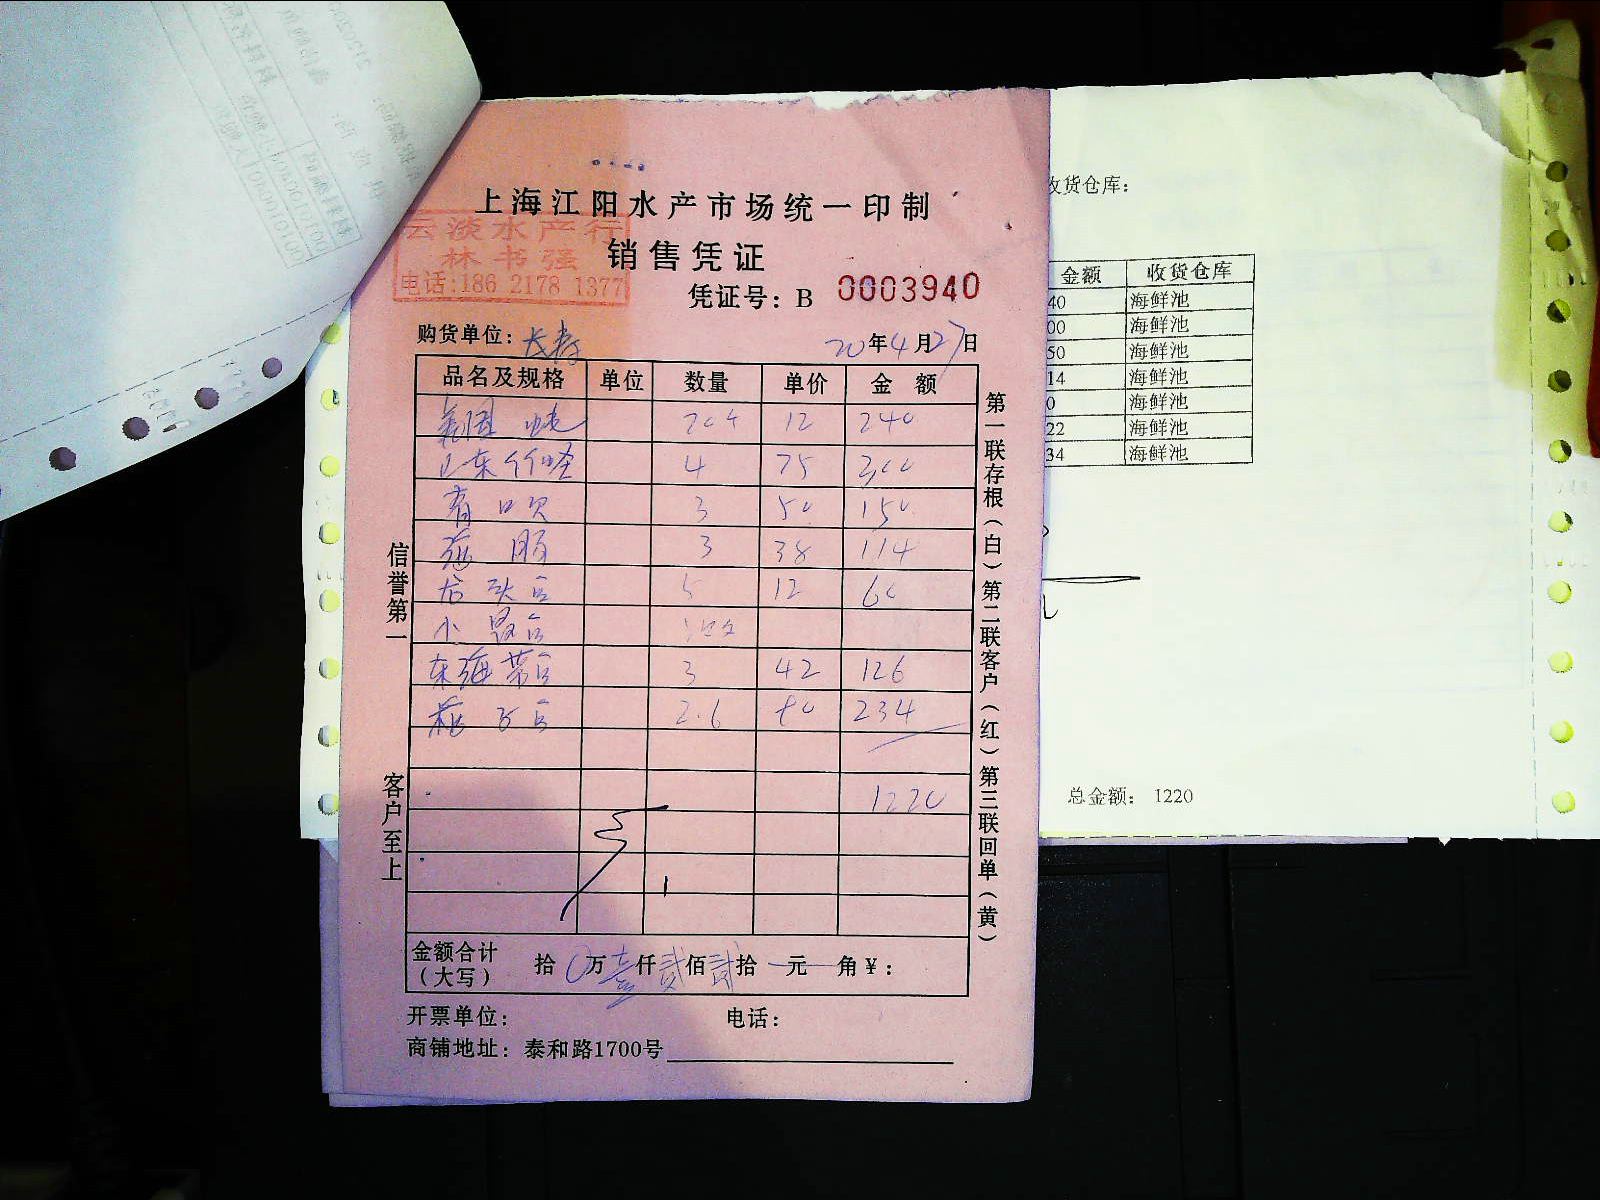 上海江阳水产市场统一印制
云淡水产行
林书强
电话:186 2178 1377
销售凭证
凭证号: B 0003940
购货单位: 长寿 20年4月27日
品名及规格 单位 数量 单价 金额
美国 12 240
山东竹蛏 4 75 300
3 50 150
海肠 3 38 114
龙头 5 12 60
小
东海带 3 42 126
2.6 90 234
1220
金额合计
(大写)
拾0万壹仟贰佰贰拾 元 角¥:
开票单位: 电话:
商铺地址: 泰和路1700号
信誉第一
客户至上
第一联存根(白)第二联客户(红)第三联回单(黄)
收货仓库:
金额 收货仓库
40 海鲜池
00 海鲜池
50 海鲜池
14 海鲜池
0 海鲜池
22 海鲜池
34 海鲜池
总金额: 1220